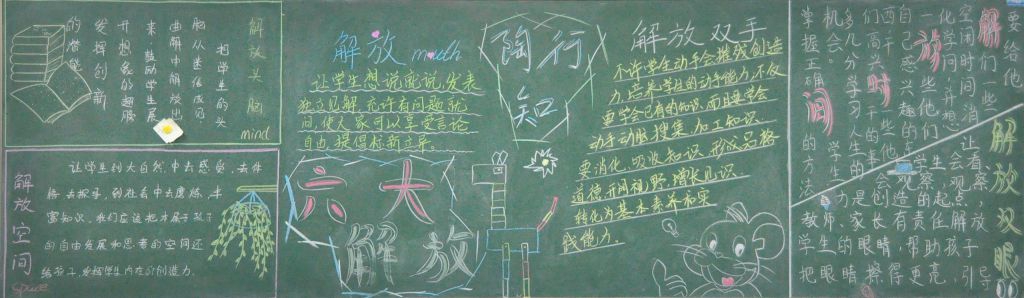 解放头脑
把学生的头
脑从迷信成见
曲解中解放出
来鼓励学生展
开想象的翅膀
发挥创新
的潜能
mind
解放空间
让学生到大自然中去感受,去体
验去探寻,到社会中去磨炼,丰
富知识,我们应该把本属于孩子
的自由发展和思考的空间还
给孩子,发挥学生内在的创造力.
解放 mouth
让学生想说能说,发表
独立见解,允许有问题就
问,使大家可以享受言论
自由,提倡标新立异.
陶行知
六大
解放
解放双手
不许学生动手会摧残创造
力,培养学生的动手能力,不仅
要学会已有的知识,而且要学会
动手动脑,搜集,加工知识.
要消化,吸收知识,形成品格
道德,开阔视野,增长见识.
转化为基本素养和实
践能力.
解放时间
要给他们一些
空闲时间消
化学习并想
一些他们自
己感兴趣的
西高于
们干一些
多学习人生
机会
掌握正确
的方法
解放双眼
让学生会看会观察,观
察是创造的起点,
教师、家长有责任解放
学生的眼睛,帮助孩子
把眼睛擦得更亮,引导